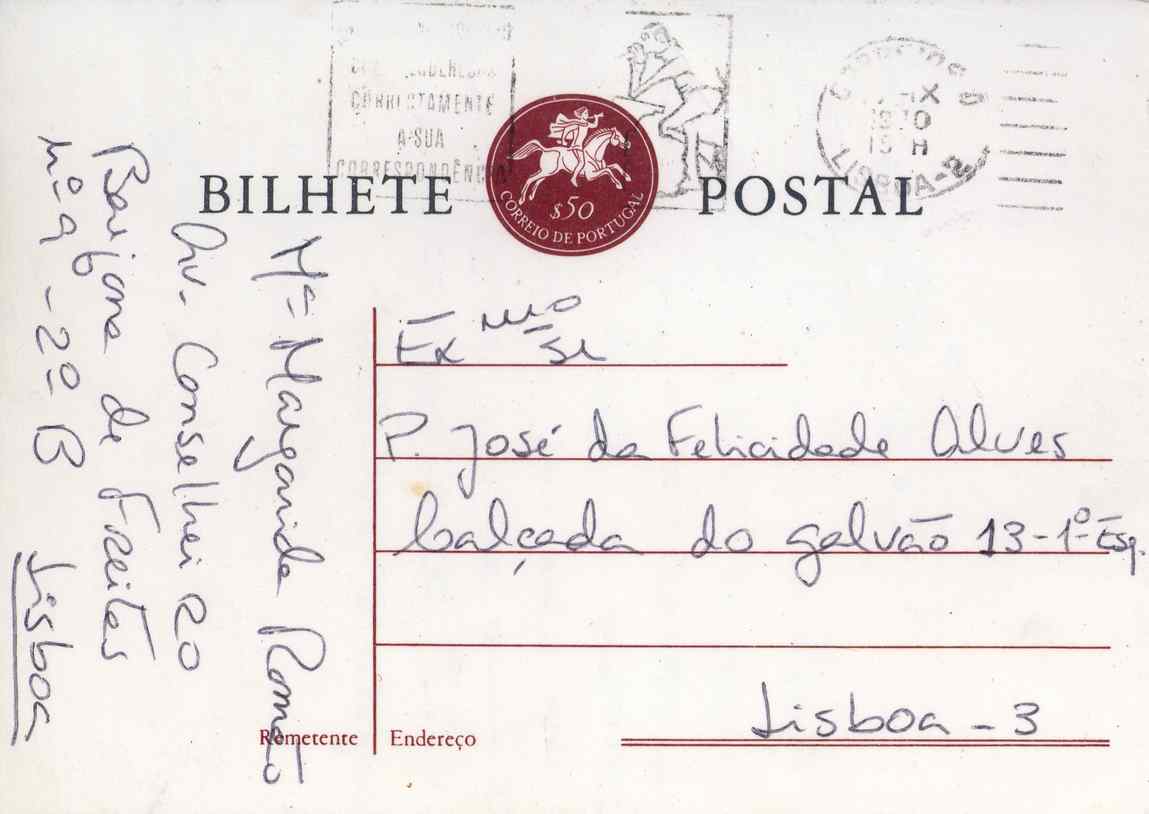 CORRECTAMENTE
A SUA
CORRESPONDÊNCIA
CORREIOS
IX
1970
15 H
LISBOA-2
BILHETE POSTAL
$50
CORREIO DE PORTUGAL
Exmo Sr
P. José da Felicidade Alves
Calçada do galvão 13-1º-Esq.
Lisboa-3
Remetente
Endereço
Mª Margarida Romão
Av. Conselheiro
Barjona de Freitas
nº 9-2º B Lisboa